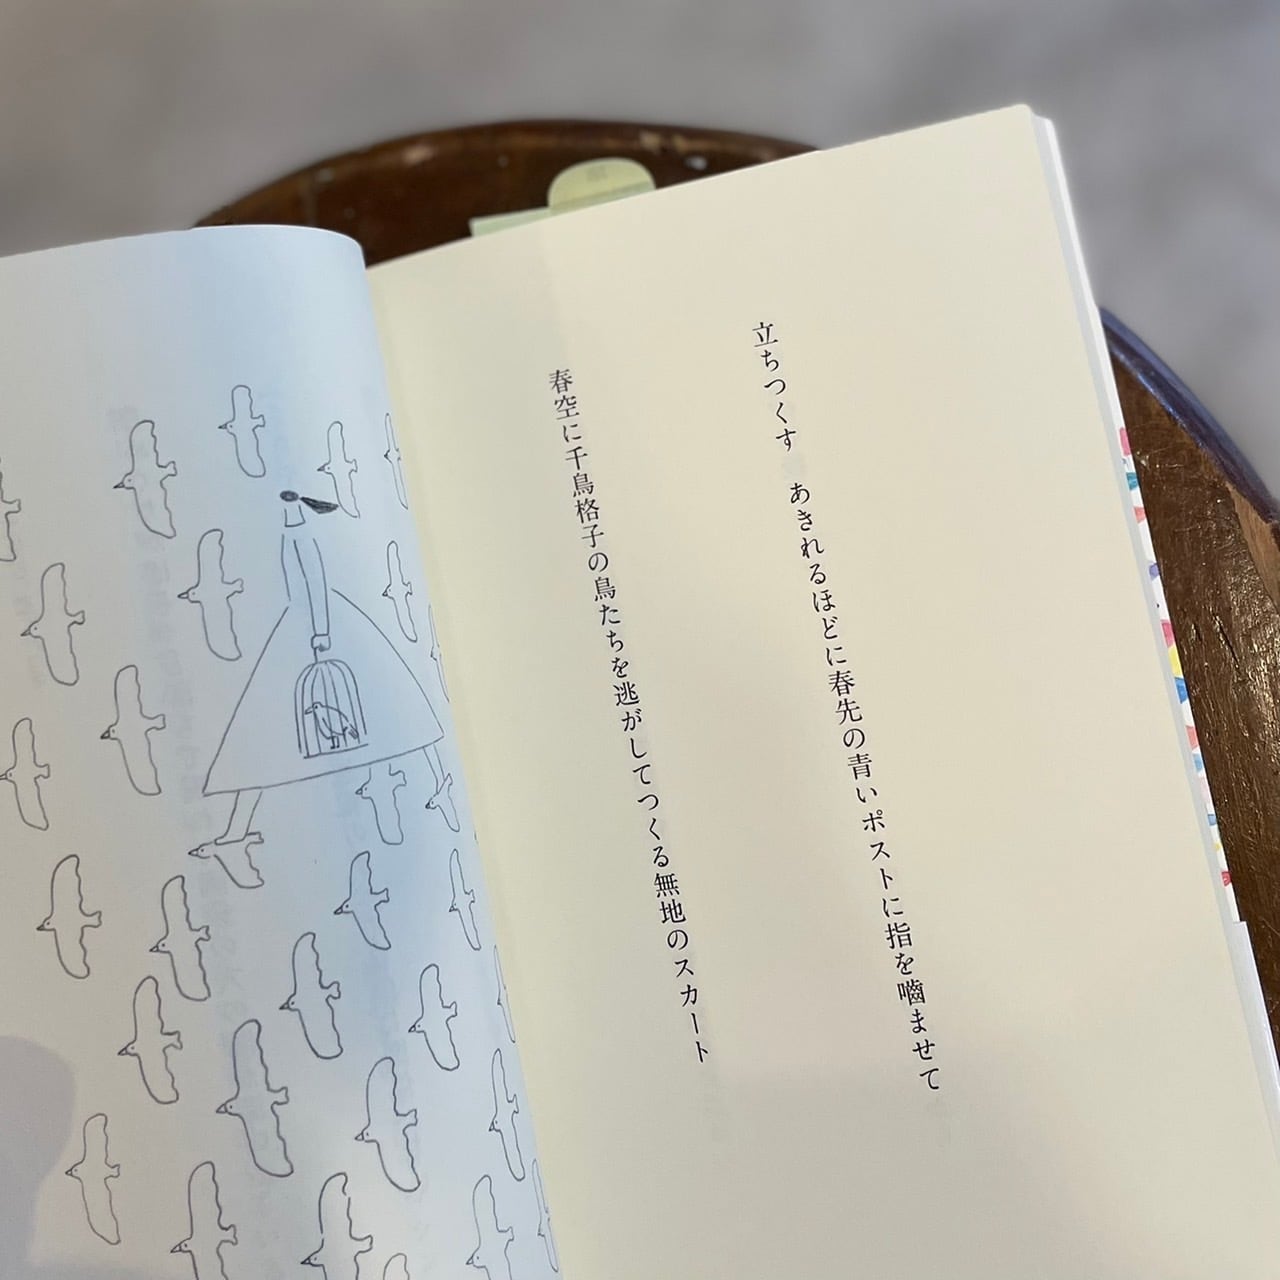 立ちつくす　あきれるほどに春先の青いポストに指を嚙ませて
春空に千鳥格子の鳥たちを逃がしてつくる無地のスカート